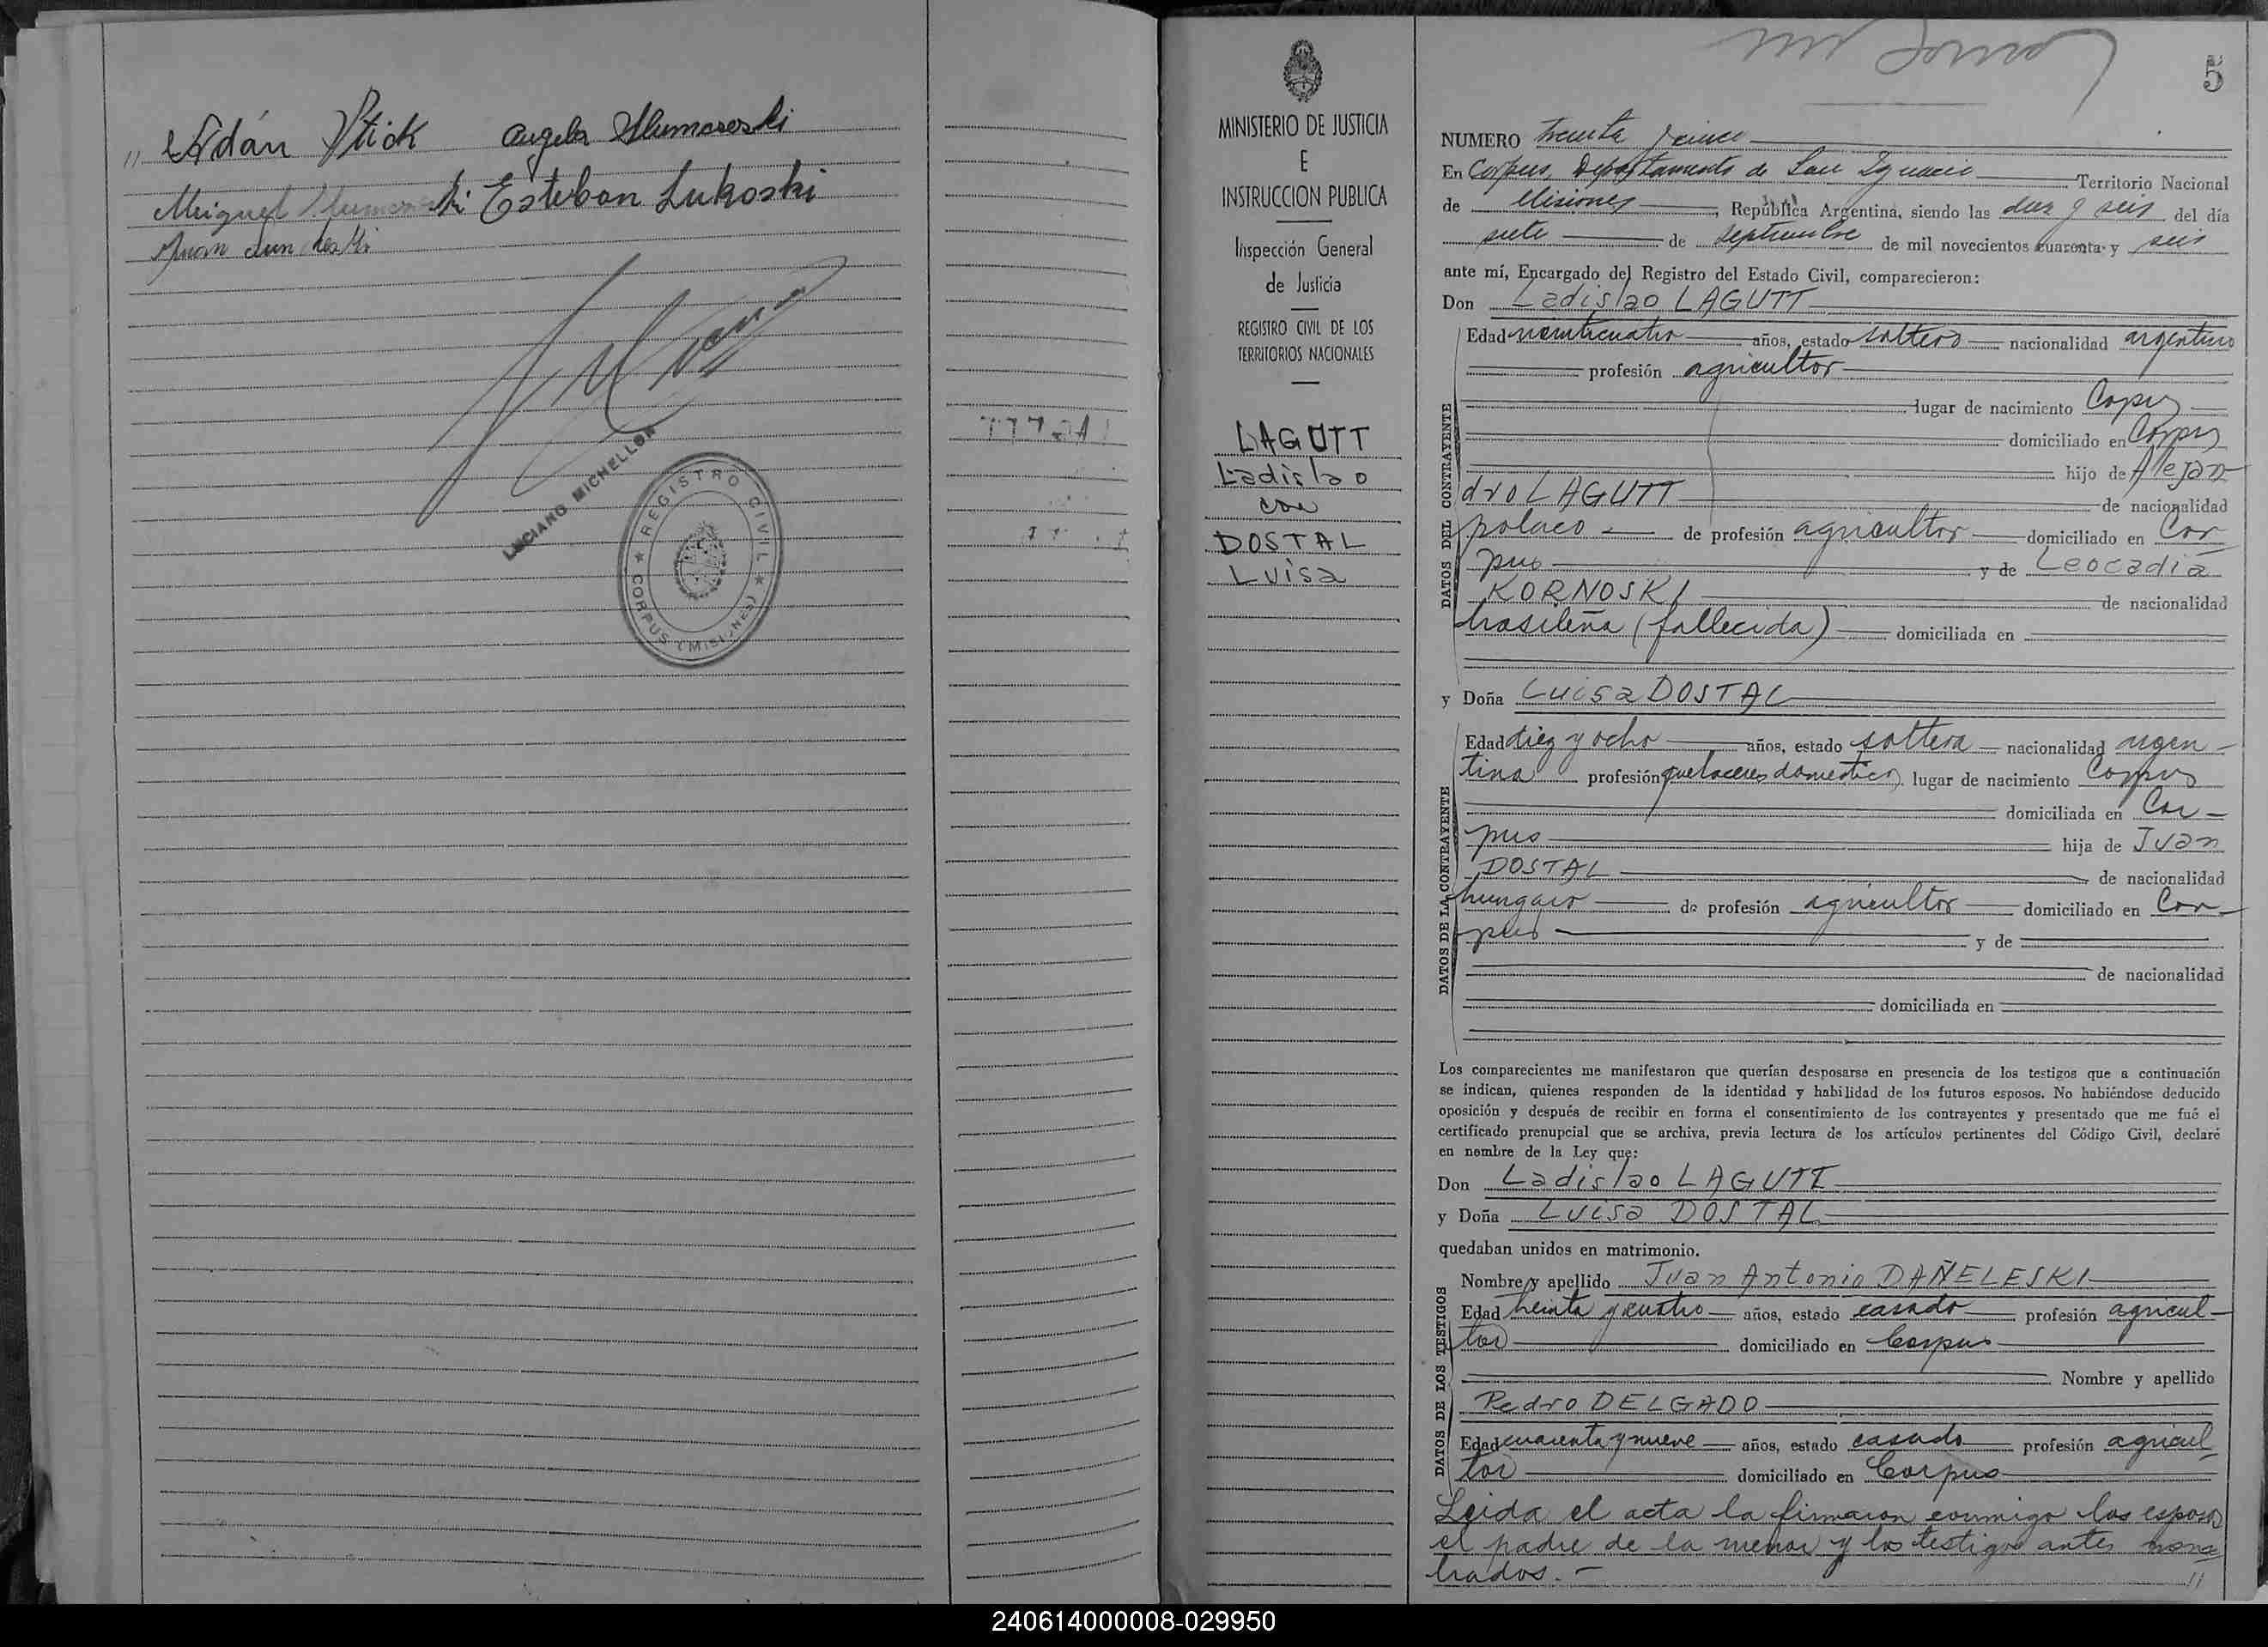 " Adán Ptick Angela Slumaseski
Miguel
Esteban Lukoski
Juan
LUCIANO MICHELLOD
REGISTRO CIVIL
CORPUS (MISIONES)
5
MINISTERIO DE JUSTICIA
E
INSTRUCCION PUBLICA
Inspección General
de Justicia
REGISTRO CIVIL DE LOS
TERRITORIOS NACIONALES
LAGUTT
Ladislao
con
DOSTAL
Luisa
NUMERO Treinta y cinco
En Corpus, Departamento de San Ignacio Territorio Nacional
de Misiones, República Argentina, siendo las diez y seis del día
siete de septiembre de mil novecientos cuarenta y seis
ante mí, Encargado del Registro del Estado Civil, comparecieron:
Don Ladislao LAGUTT
DATOS DEL CONTRAYENTE
Edad veinticuatro años, estado soltero nacionalidad argentino
profesión agricultor
lugar de nacimiento Corpus
domiciliado en Corpus
hijo de Alejan
dro LAGUTT de nacionalidad
polaco - de profesión agricultor domiciliado en Cor
pus y de Leocadia
KORNOSKI de nacionalidad
brasileña (fallecida) domiciliada en
y Doña Luisa DOSTAL
DATOS DE LA CONTRAYENTE
Edad diez y ocho años, estado soltera nacionalidad argen-
tina profesión quehaceres domesticos lugar de nacimiento Corpus
domiciliada en Cor-
pus hija de Juan
DOSTAL de nacionalidad
hungaro de profesión agricultor domiciliado en Cor-
pus y de
de nacionalidad
domiciliada en
Los comparecientes me manifestaron que querían desposarse en presencia de los testigos que a continuación
se indican, quienes responden de la identidad y habilidad de los futuros esposos. No habiéndose deducido
oposición y después de recibir en forma el consentimiento de los contrayentes y presentado que me fué el
certificado prenupcial que se archiva, previa lectura de los artículos pertinentes del Código Civil, declaré
en nombre de la Ley que:
Don Ladislao LAGUTT
y Doña Luisa DOSTAL
quedaban unidos en matrimonio.
DATOS DE LOS TESTIGOS
Nombre y apellido Juan Antonio DAÑELESKI
Edad treinta y cuatro años, estado casado profesión agricul-
tor domiciliado en Corpus
Nombre y apellido
Pedro DELGADO
Edad cuarenta y nueve años, estado casado profesión agricul
tor domiciliado en Corpus
Leida el acta la firmaron conmigo los esposos
el padre de la menor y los testigos antes nom
brados.- "
240614000008-029950